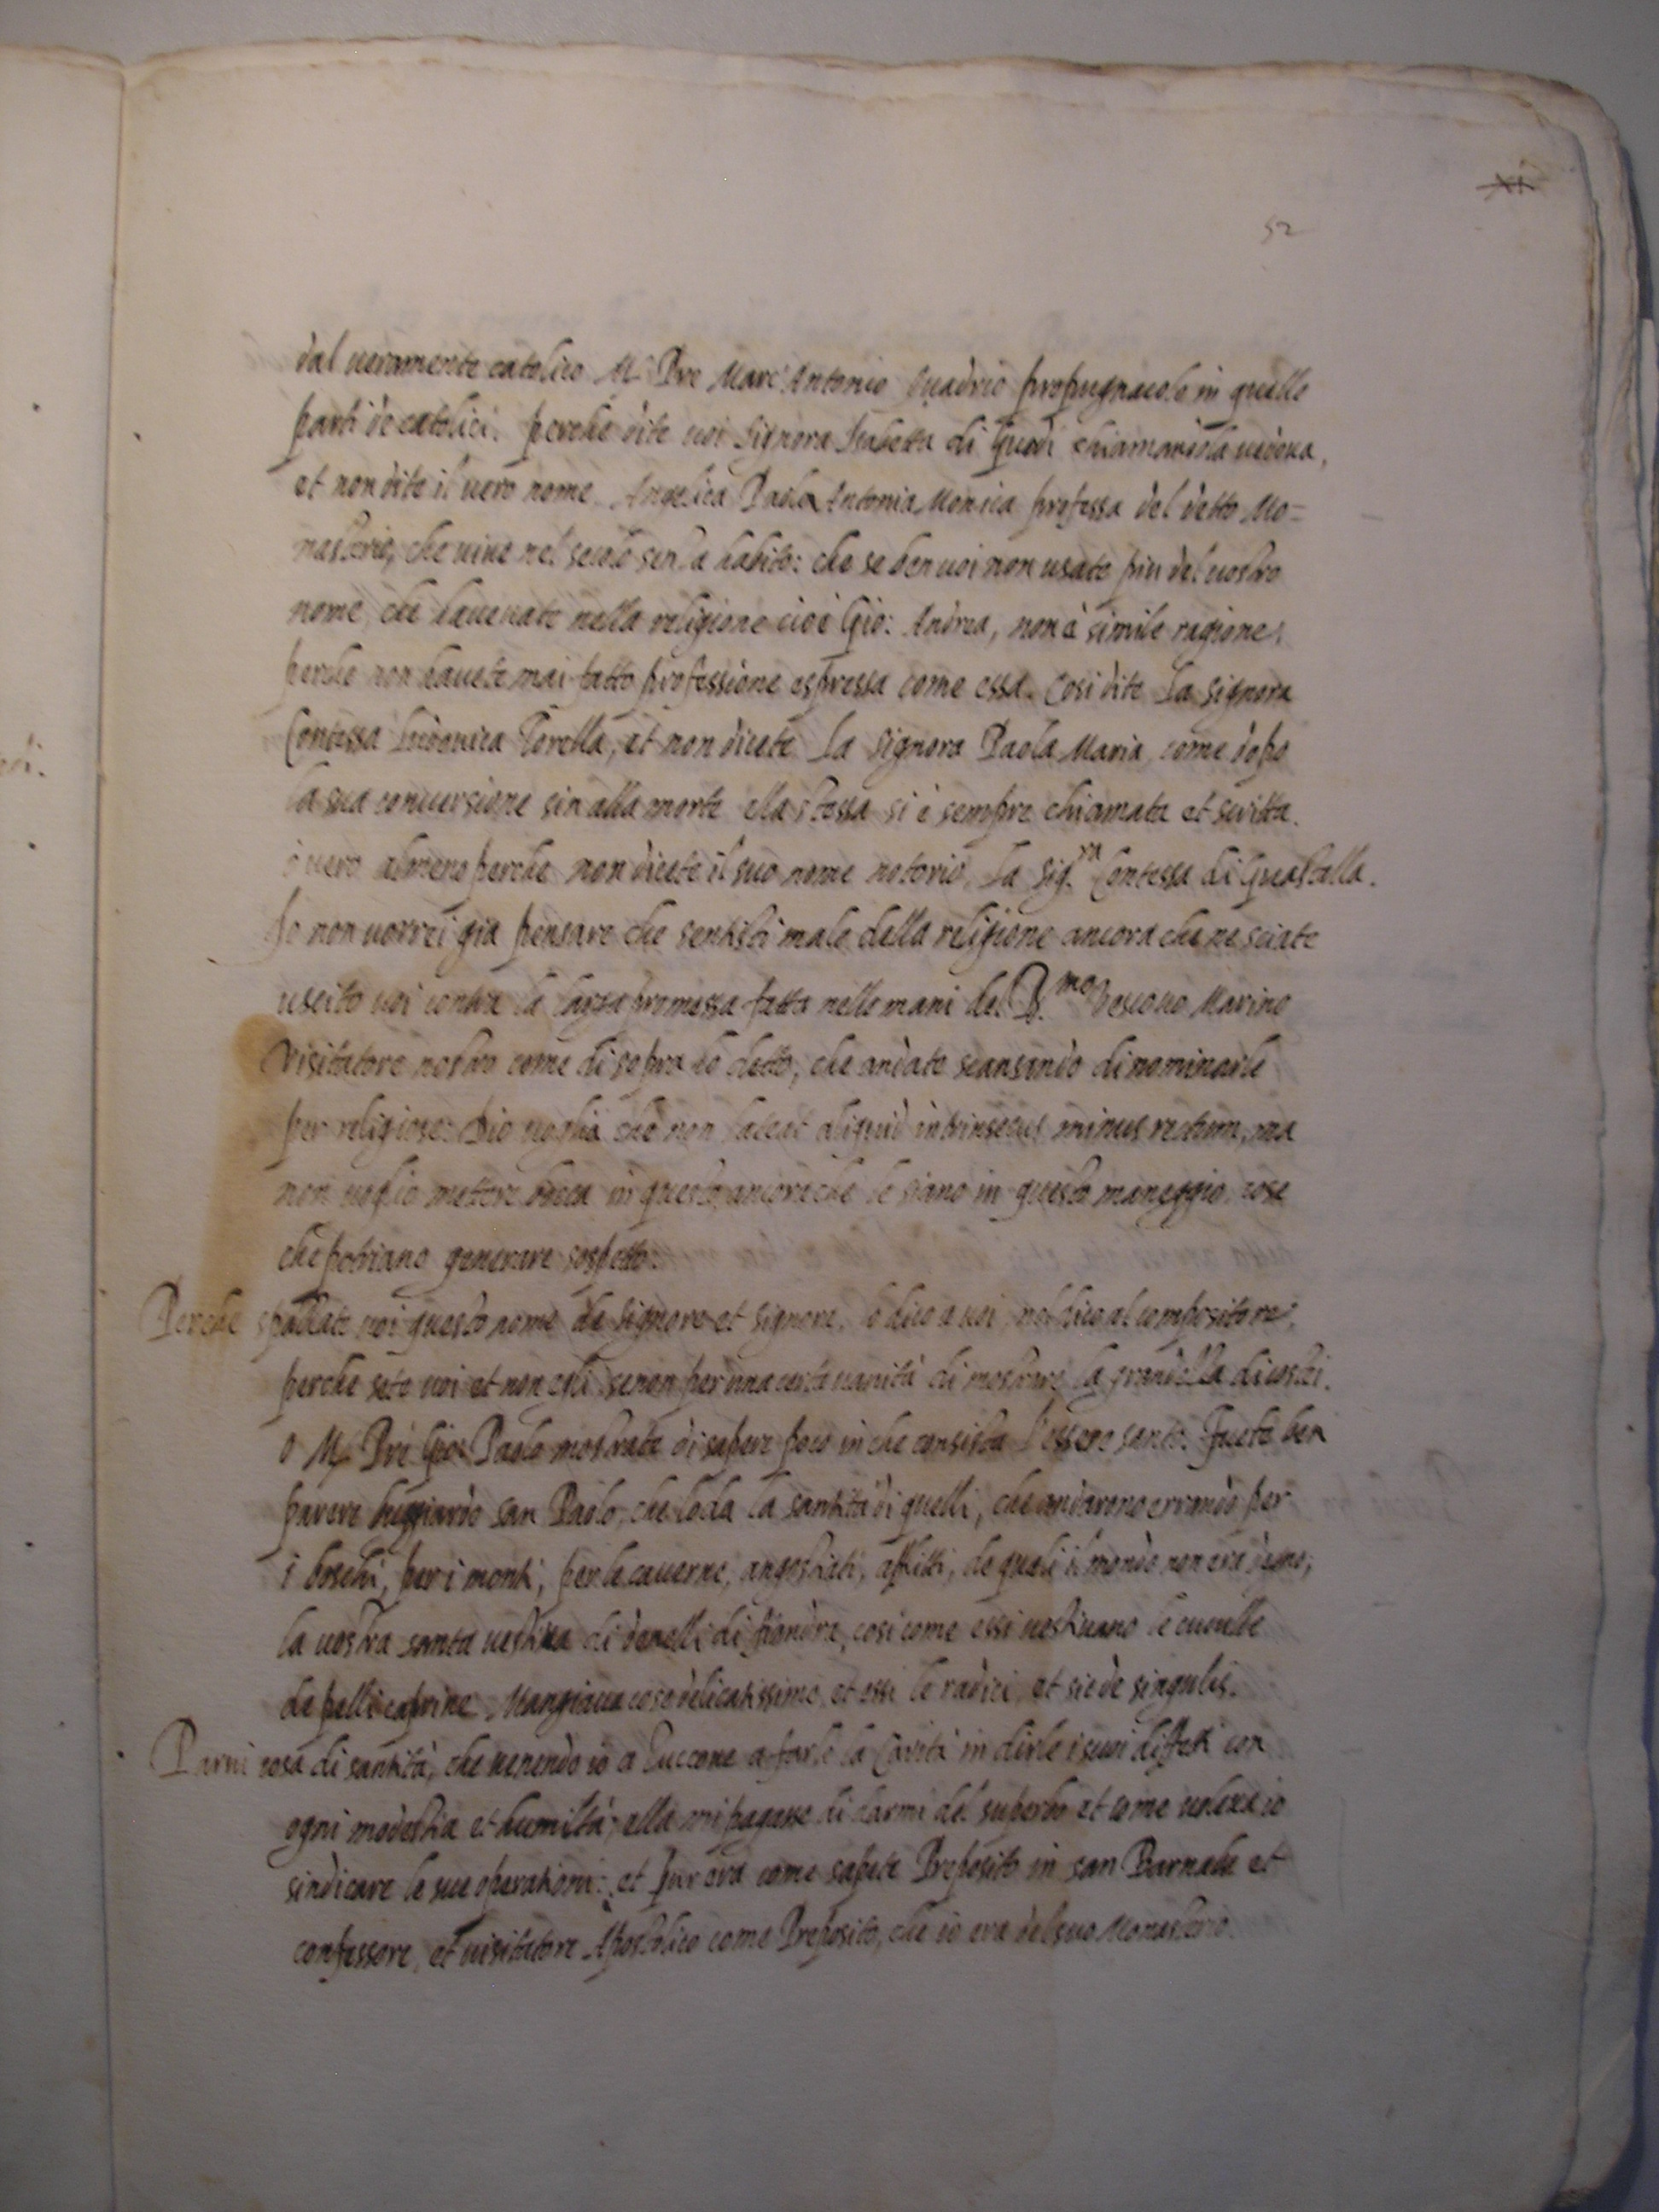 XI
52
dal veramente catolico M. Pre Marc'Antonio Quadrio propugnacolo in quelle
parti de catolici. perche dite voi Signora Isabetta di vedova,
et non dite il vero nome Angelica Paola Antonia Monica professa del detto Mo=
nasterio, che vive nel secolo senza habito: che se ben voi non usate piu del vostro
nome, che havevate nella religione cioè Gio: Andrea, non è simile ragione:
perche non havete mai fatto professione espressa come essa. Cosi dite la signora
Contessa Lodovica Torella, et non dicete la signora Paola Maria, come dopo
la sua conversione sin alla morte ella stessa si è sempre chiamata et scritta.
o vero almeno perche non dicete il suo nome notorio, la Sig.ra Contessa di Guastalla.
Io non vorrei gia pensare che sentisti male della religione ancora che ne sciate
uscito voi contra la promessa fatta nelle mani del R.mo Vescovo Marino
Visitatore nostro come di sopra ho detto, che andate scansando di nominarle
per religiose: Dio voglia che non lateat aliquid intrinsecus minus rectum, ma
non voglio mettere bocca in questo, ancora che le siano in questo maneggio cose
che potriano generare sospetto.
Perche voi questo nome de signore et signore, o dico a voi, nol dico al compositore,
perche sete voi et non egli. se non per una certa vanità di mostrare la grandezza di costei.
O M. Pre Gio: Paolo mostrate di sapere poco in che consista l'essere santo. Fuete ben
parere buggiardo san Paolo, che loda la santità di quelli, che andarono errando per
i boschi, per i monti, per le caverne, angostiati, afflitti, de quali il mondo non era degno;
la vostra santa vestiva di di fiandra, cosi come essi vestivano le cuculle
de pelli caprine. Mangiava cose delicatissime, et essi le radici, et sic de singulis.
Parmi cosa di santità, che venendo io a Zuccone a farle la Carità in dirle i suoi diffetti con
ogni modestia et humiltà, ella mi pagasse di darmi del superbo et come voleva io
sindicare le sue operationi: et pur era come sapete Preposito in san Barnaba et
confessore, et visitatore Apostolico come Preposito, che io era del suo Monasterio.